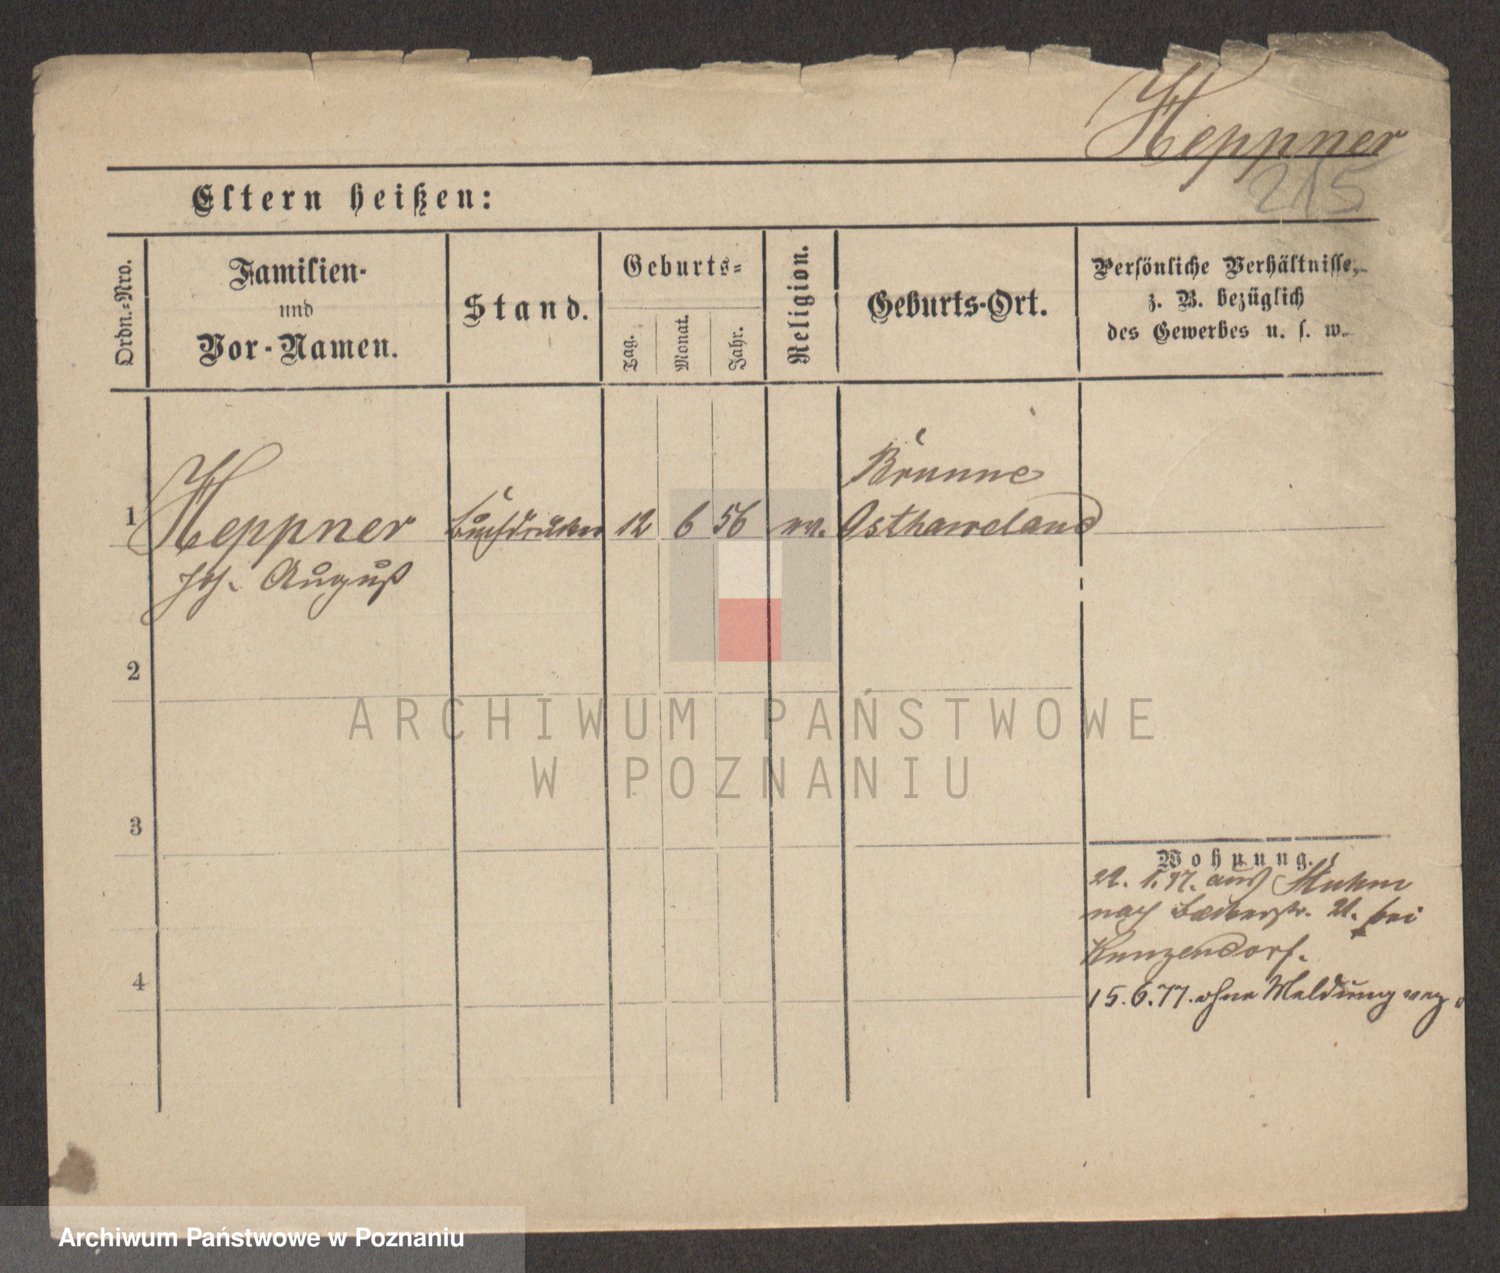 Heppner
215
Eltern heißen:
Ordn.-Nro.
Familien-
und
Vor-Namen.
Stand.
Geburts-
Tag.
Monat.
Jahr.
Religion.
Geburts-Ort.
Persönliche Verhältnisse,
z. B. bezüglich
des Gewerbes u. s. w.
Brunne
1 Heppner Buchdrucker 12 6 56 ev. Osthavelland
Joh. August
2
ARCHIWUM PAŃSTWOWE
W POZNANIU
3
Wohnung.
22. 1.77. aus
nach 21. bei
Kunzendorf.
4
15.6.77. ohne Meldung
Archiwum Państwowe w Poznaniu